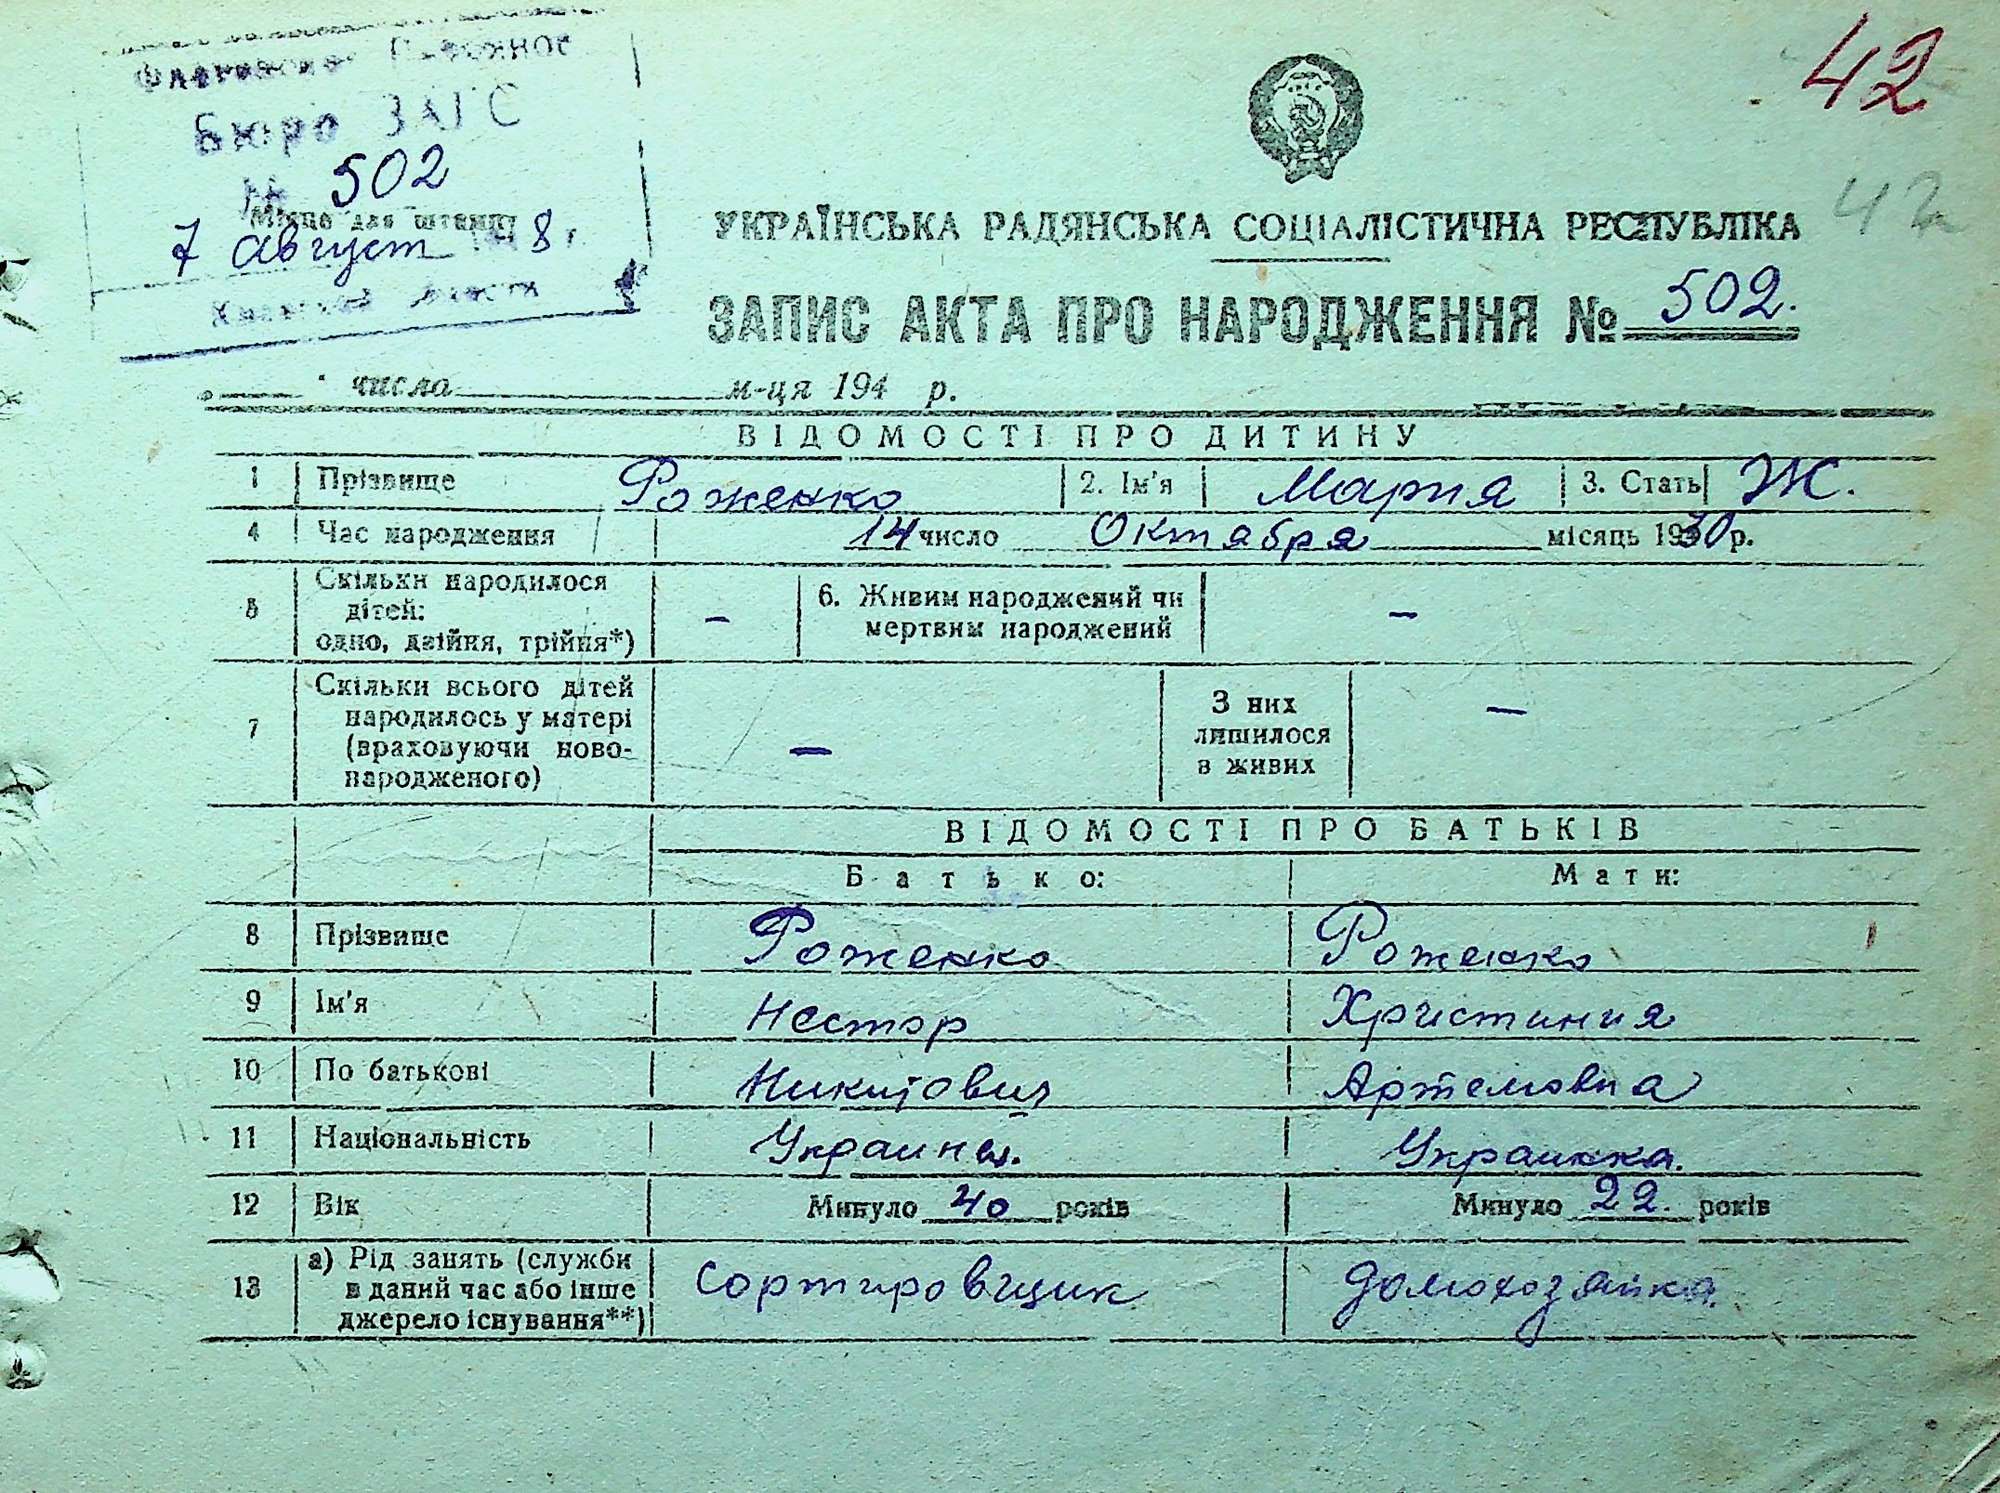 Бюро ЗАГС
№ 502
Місце для штампу
7 август 8 г.
42
42
УКРАЇНСЬКА РАДЯНСЬКА СОЦІАЛІСТИЧНА РЕСПУБЛІКА
ЗАПИС АКТА ПРО НАРОДЖЕННЯ № 502.
числа м-ця 194 р.
ВІДОМОСТІ ПРО ДИТИНУ
1 Прізвище Роженко 2. Ім'я Мария 3. Стать Ж.
4 Час народження 14 число Октября місяць 1930 р.
5 Скільки народилося дітей: одно, двійня, трійня*) – 6. Живим народжений чи мертвим народжений –
7 Скільки всього дітей народилось у матері (враховуючи ново-народженого) – З них лишилося в живих –
ВІДОМОСТІ ПРО БАТЬКІВ
Батько: Мати:
8 Прізвище Роженко Роженко
9 Ім'я Нестор Христиния
10 По батькові Никитович Артемовна
11 Національність Украинец. Украинка.
12 Вік Минуло 40 років Минуло 22. років
13 а) Рід занять (служби в даний час або інше джерело існування**) Сортировщик домохозяйка.